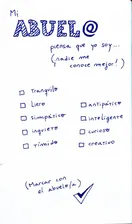 Mi
ABUEL@
piensa que yo soy...
(nadie me
conoce mejor!)
tranquilo
simpático
inquieto
tímido
antipático
inteligente
curioso
creativo
(Marcar con
el abuelo/a)